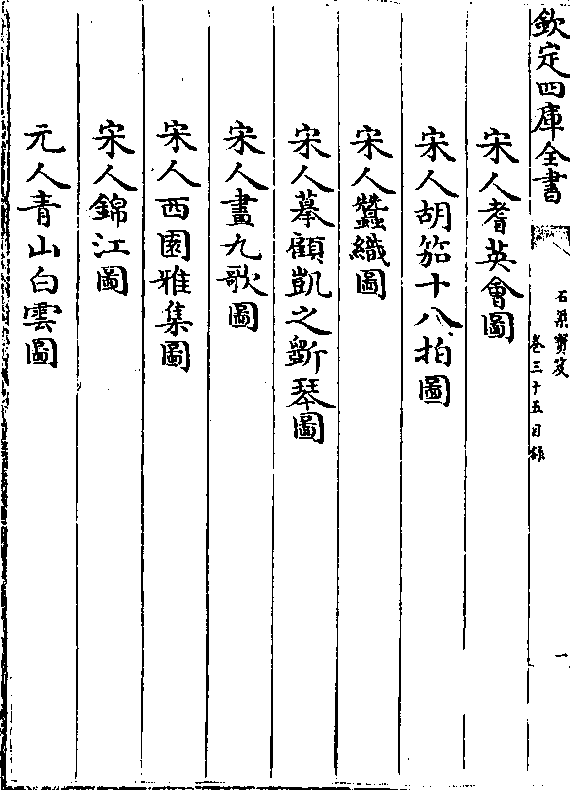 欽定四庫全書
石渠寶笈
卷三十五目錄
一
宋人耆英會圖
宋人胡笳十八拍圖
宋人蠶織圖
宋人摹顧凱之斵琴圖
宋人畫九歌圖
宋人西園雅集圖
宋人錦江圖
元人青山白雲圖